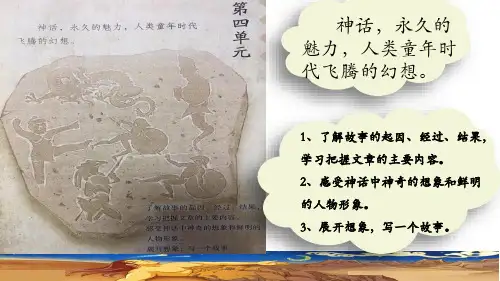 第四单元
神话，永久的魅力，人类童年时代
飞腾的幻想。
了解故事的起因、经过、结果，
学习把握文章的主要内容。
感受神话中神奇的想象和鲜明的
人物形象。
展开想象，写一个故事。
神话，永久的
魅力，人类童年时
代飞腾的幻想。
1、了解故事的起因、经过、结果，
学习把握文章的主要内容。
2、感受神话中神奇的想象和鲜明
的人物形象。
3、展开想象，写一个故事。